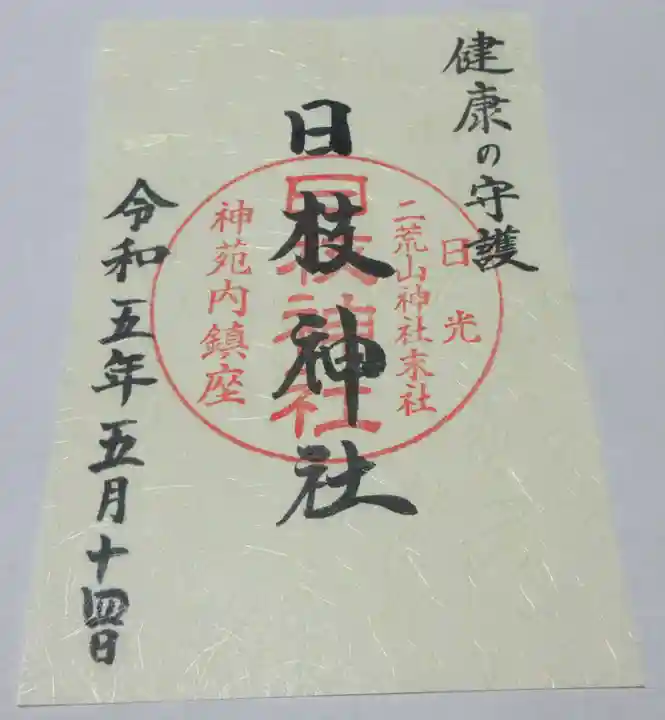 健康の守護
日光
二荒山神社末社
日枝神社
日枝神社
神苑内鎮座
令和五年五月十四日